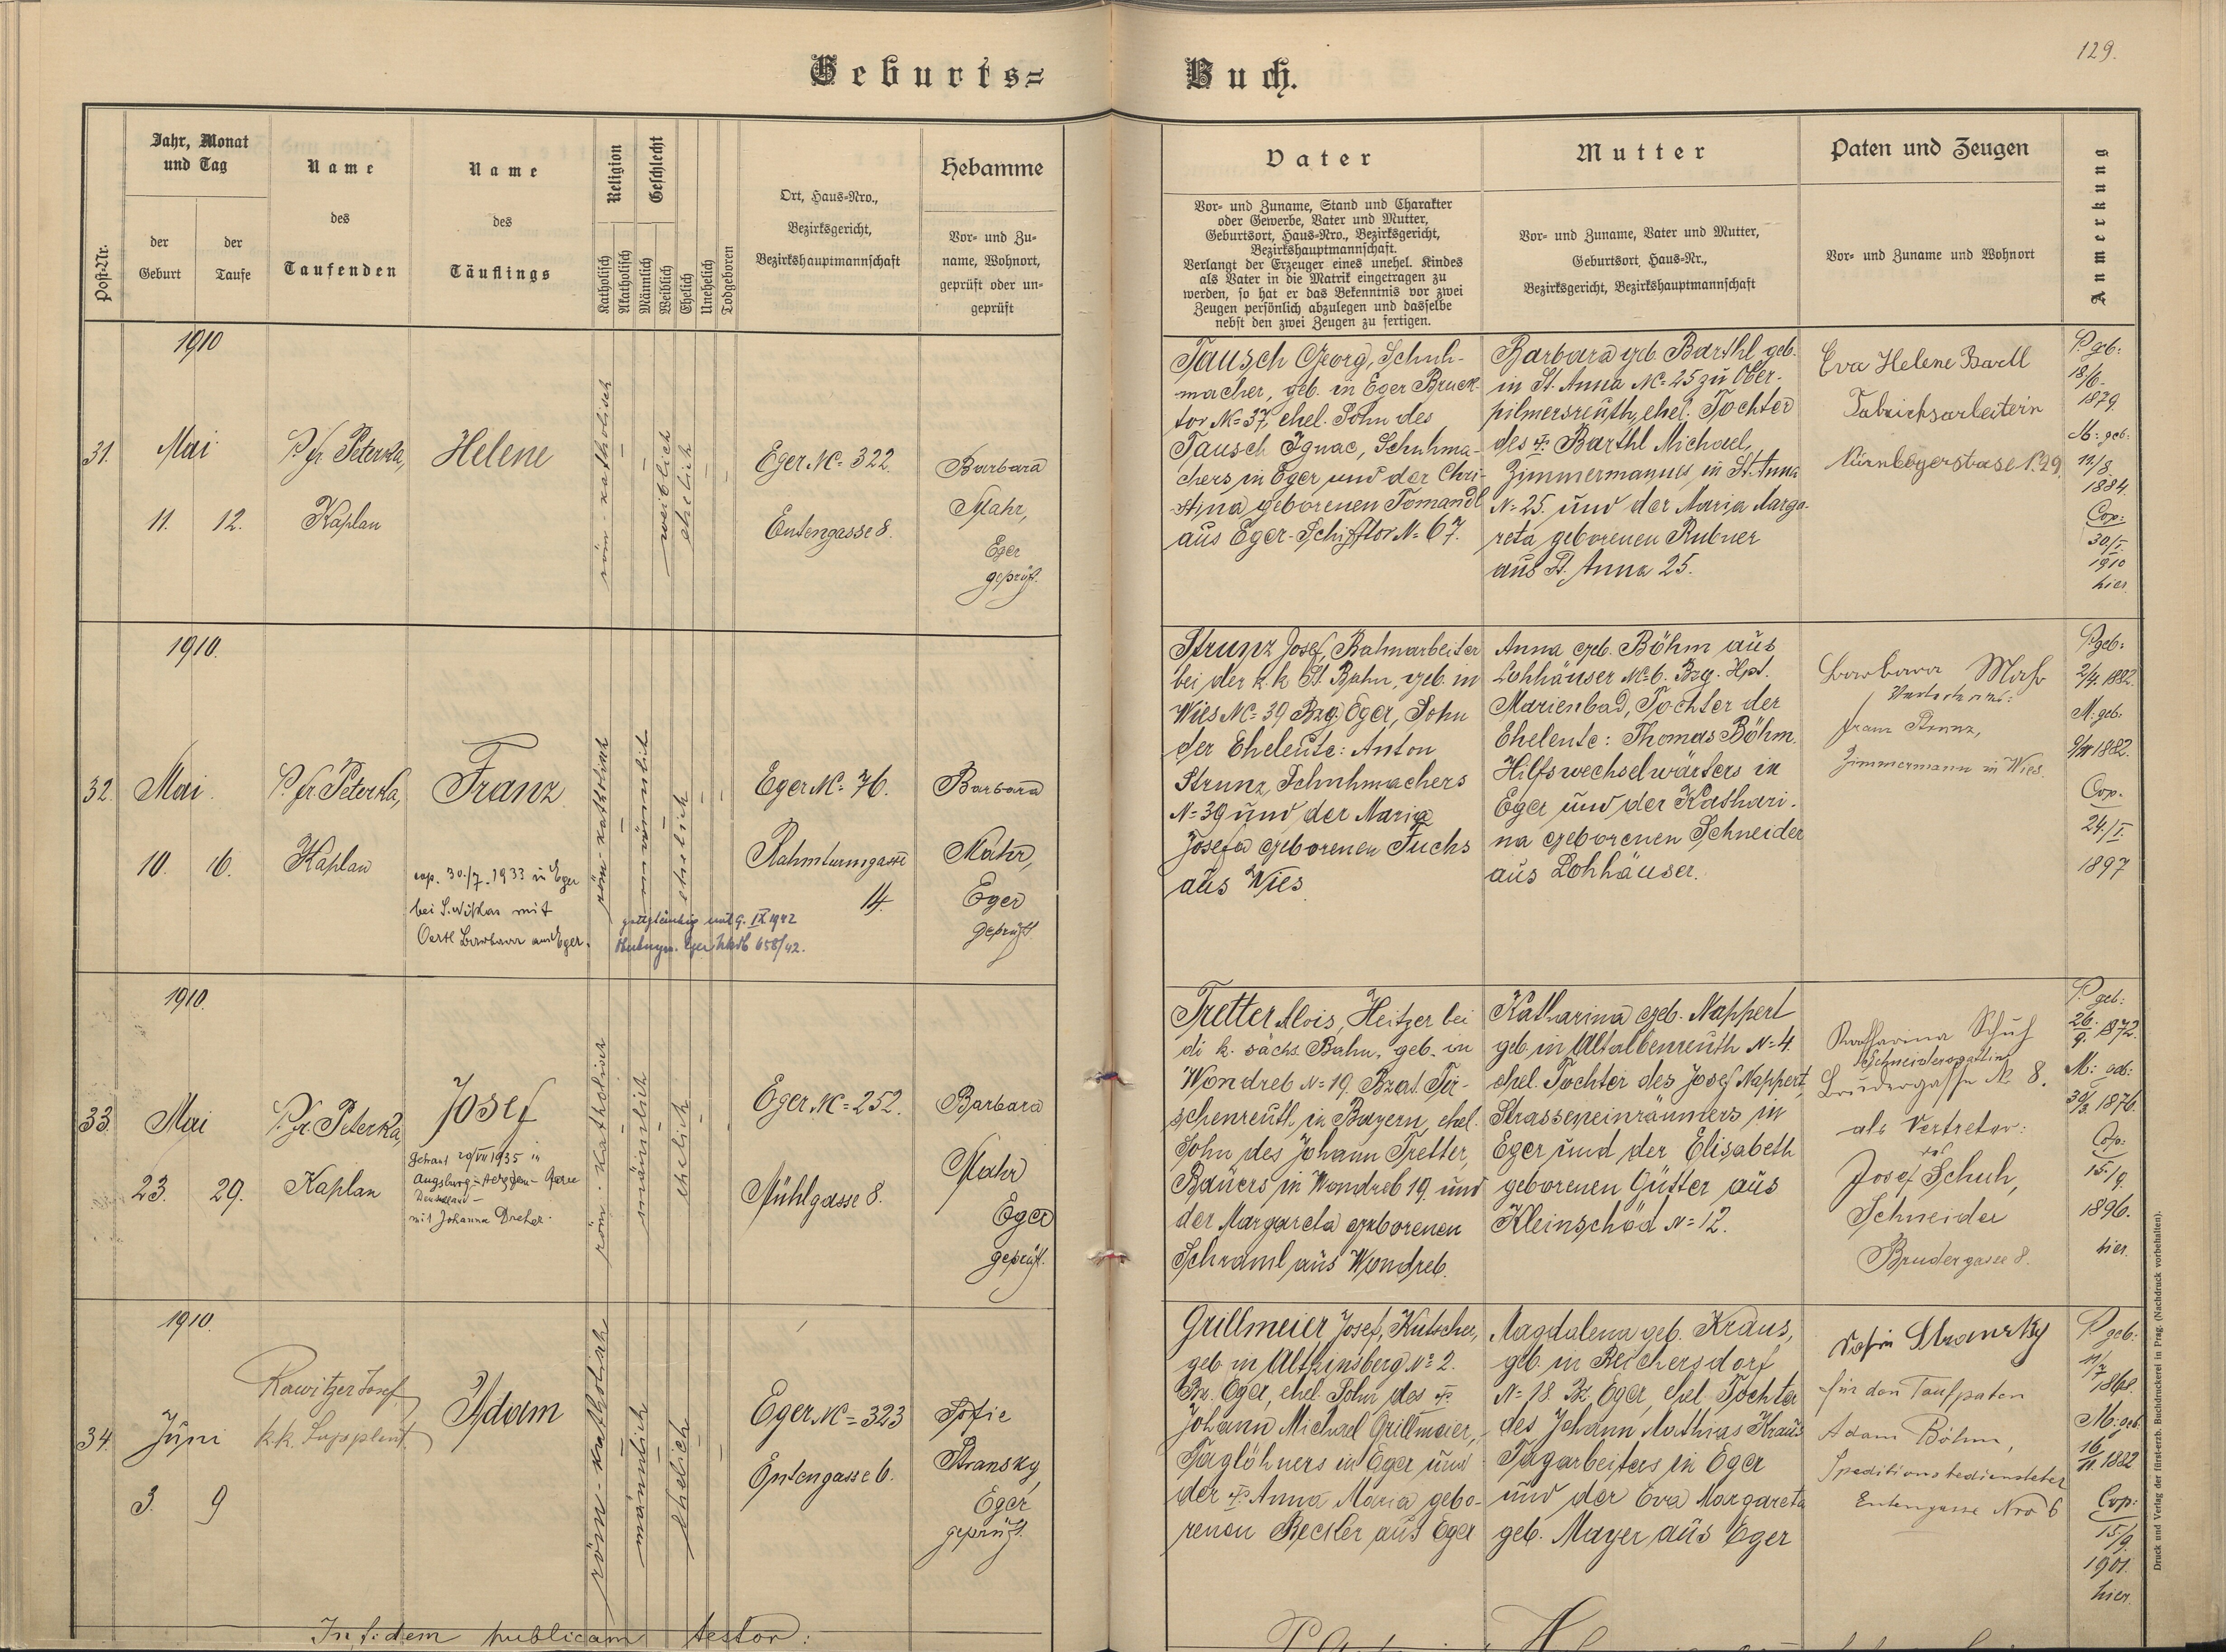 129.
Geburts=
Buch.
Post-Nr.
Jahr, Monat
und Tag
der
Geburt
der
Taufe
Name
des
Taufenden
Name
des
Täuflings
Religion
Katholisch
Akatholisch
Geschlecht
Männlich
Weiblich
Ehelich
Unehelich
Todgeboren
Ort, Haus=Nro.,
Bezirksgericht,
Bezirkshauptmannschaft
Hebamme
Vor= und Zu=
name, Wohnort,
geprüft oder un=
geprüft
Vater
Vor= und Zuname, Stand und Charakter
oder Gewerbe, Vater und Mutter,
Geburtsort, Haus=Nro., Bezirksgericht,
Bezirkshauptmannschaft.
Verlangt der Erzeuger eines unehel. Kindes
als Vater in die Matrik eingetragen zu
werden, so hat er das Bekenntnis vor zwei
Zeugen persönlich abzulegen und dasselbe
nebst den zwei Zeugen zu fertigen.
Mutter
Vor= und Zuname, Vater und Mutter,
Geburtsort, Haus=Nr.,
Bezirksgericht, Bezirkshauptmannschaft
Paten und Zeugen
Vor= und Zuname und Wohnort
Anmerkung
1910
31.
Mai
11. 12.
P. fr. Peterka,
Kaplan
Helene
röm-katholisch
weiblich
ehelich
Eger Nc= 322.
Entengasse 8.
Barbara
Mahr,
Eger
geprüft.
Tausch Georg, Schuh-
macher, geb. in Eger Bruck-
tor Nc=37, ehel. Sohn des
Tausch Ignac, Schuhma-
chers in Eger und der Chri-
stina geborenen Tomandl
aus Eger-Schifftor N= 67.
Barbara geb. Barthl geb.
in St. Anna Nc=25 zu Ober-
pilmersreuth, ehel. Tochter
des † Barthl Michael,
Zimmermannes in St. Anna
N=25. und der Maria Marga-
reta geborenen Rubner
aus St. Anna 25.
Eva Helene Bartl
Fabriksarbeiterin
P. geb:
18/6.
1879.
M: geb:
11/8.
1884.
Cop:
30/I.
1910
hier
1910.
32.
Mai
10. 16.
P. fr. Peterka,
Kaplan
Franz
cop. 30./7. 1933 in Eger
bei S. Niklas mit
Oertl Barbara aus Eger.
röm-katholisch
männlich
ehelich
Eger Nc= 76.
Rahmturmgasse
14.
gottgläubig seit 9. IX 1942
658/42.
Barbara
Mahr,
Eger
geprüft
Strunz Josef, Bahnarbeiter
bei der k.k. St. Bahn, geb. in
Wies Nc= 39 Bzg. Eger, Sohn
der Eheleute: Anton
Strunz, Schuhmachers
N=39 und der Maria
Josefa geborenen Fuchs
aus Wies.
Anna geb. Böhm aus
Lohhäuser Nc=6. Bzg. Hpt.
Marienbad, Tochter der
Eheleute: Thomas Böhm.
Hilfswechselwärters in
Eger und der Kathari-
na geborenen Schneider
aus Lohhäuser.
Barbara Mahr
Franz Strunz,
Zimmermann in Wies.
P. geb:
2/4. 1882.
M: geb.
1882.
Cop.
24./I.
1897
1910.
33.
Mai
23. 29.
P. fr. Peterka,
Kaplan
Josef
Getraut 20/VII 1935 in
Augsburg
Deutschland –
mit Johanna Dreher.
röm.-katholisch
männlich
ehelich
Eger Nc=252.
Mühlgasse 8.
Barbara
Mahr
Eger
geprüft.
Tretter Alois, Heitzer bei
di k. sächs. Bahn, geb. in
Wondreb N=19 Bzat. Tir-
schenreuth in Bayern, ehel.
Sohn des Johann Tretter,
Bauers in Wondreb 19 und
der Margareta geborenen
Schraml aus Wondreb.
Katharina geb. Nappert
geb. in Altalbenreuth N=4.
ehel. Tochter des Josef Nappert,
Strasseneinräumers in
Eger und der Elisabeth
geborenen Gütter aus
Kleinschöd N=12.
Katharina Schuh
Schneidersgattin
Brudergasse N. 8.
als Vertreter:
Josef Schuh,
Schneider
Brudergasse 8.
P. geb:
26./9. 1872.
M: geb:
30/3. 1876.
Cop:
15./9.
1896.
hier.
1910.
34.
Juni
3. 9
Rawitzer Josef,
k.k. Supplent.
Adam
röm-katholisch
männlich
ehelich
Eger Nc= 323
Entengasse 6.
Sofie
Stransky,
Eger
geprüft.
Grillmeier Josef, Kutscher,
geb. in Altkinsberg N=2.
Bz. Eger, ehel. Sohn des †
Johann Michael Grillmeier,
Taglöhners in Eger und
der † Anna Maria gebo-
renen Beckler aus Eger
Magdalena geb. Kraus,
geb. in Reichersdorf
N=18. Bz. Eger, ehel. Tochter
des Johann Mathias Kraus
Tagarbeiters in Eger
und der Eva Margareta
geb. Mayer aus Eger
Sofie Stransky
für den Taufpaten
Adam Böhm,
Speditionsbediensteter
Entengasse Nro 6
P. geb:
11/7
1868.
M: geb.
16/11. 1882
Cop:
15/9.
1901.
hier.
In fidem publicam testor:
Druck und Verlag der fürst-erzb. Buchdruckerei in Prag. (Nachdruck vorbehalten).